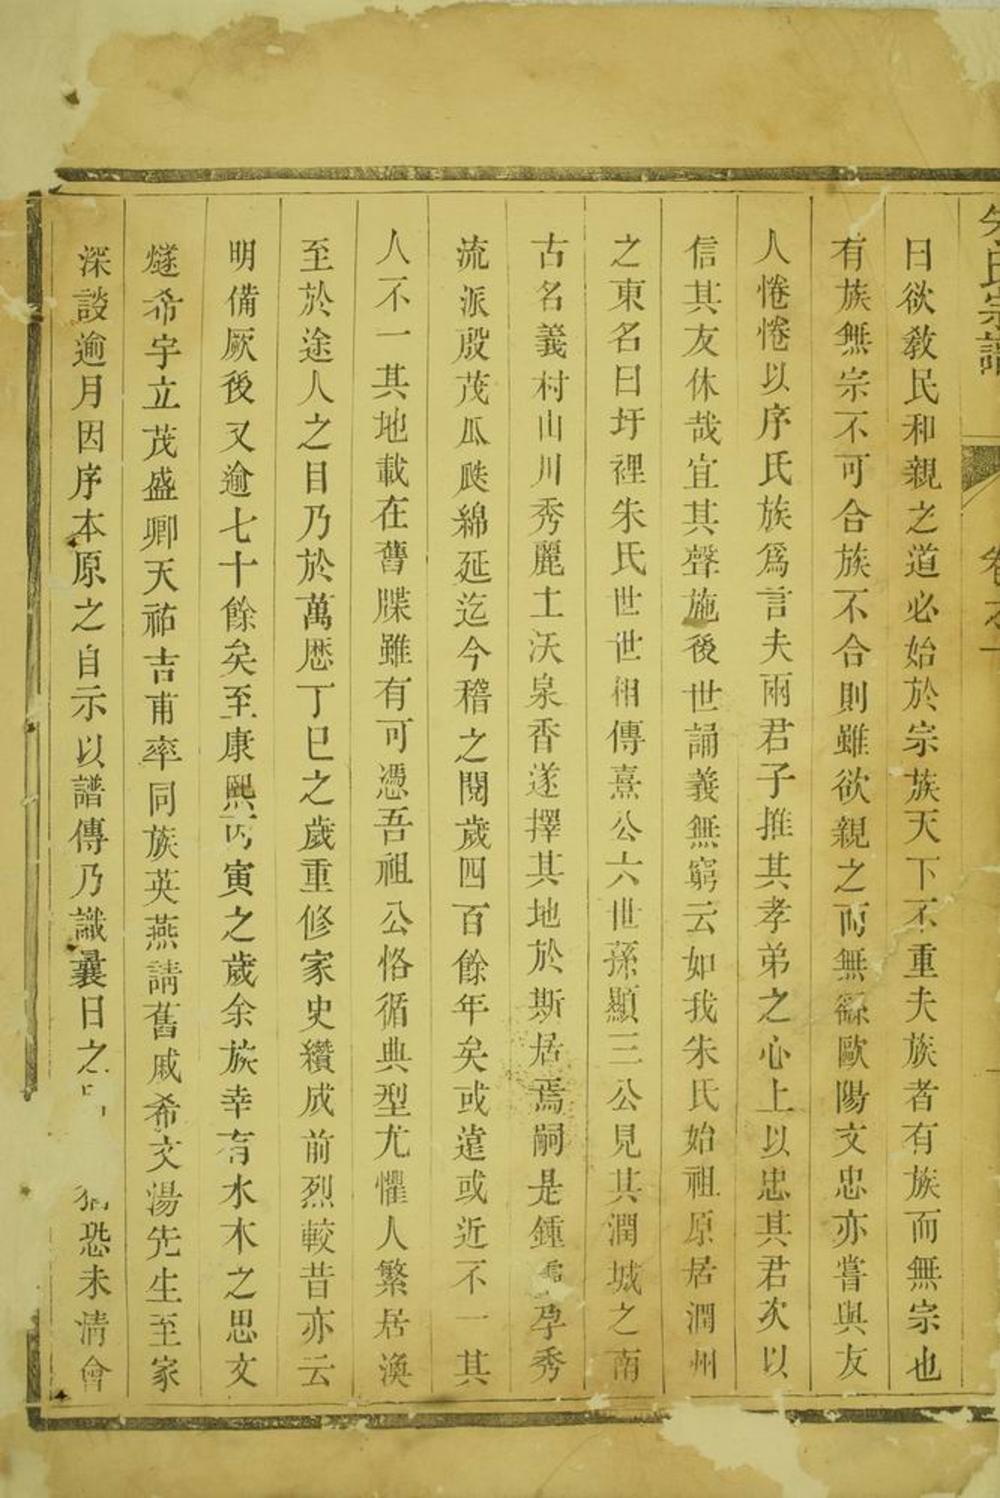 朱氏宗譜
卷之一
曰欲教民和親之道必始於宗族天下不重夫族者有族而無宗也
有族無宗不可合族不合則雖欲親之而無繇歐陽文忠亦嘗與友
人惓惓以序氏族爲言夫兩君子推其孝弟之心上以忠其君次以
信其友休哉宜其聲施後世誦義無窮云如我朱氏始祖原居潤州
之東名曰圩裡朱氏世世相傳熹公六世孫顯三公見其潤城之南
古名義村山川秀麗土沃泉香遂擇其地於斯居焉嗣是鍾孕秀
流派殷茂瓜瓞綿延迄今稽之閱歲四百餘年矣或遠或近不一其
人不一其地載在舊牒雖有可憑吾祖公恪循典型尤懼人繁居渙
至於途人之目乃於萬歷丁巳之歲重修家史纘成前烈較昔亦云
明備厥後又逾七十餘矣至康熙丙寅之歲余族幸有水木之思文
燧希宇立茂盛卿天祐吉甫率同族英燕請舊戚希文湯先生至家
深談逾月因序本原之自示以譜傳乃識曩日之猶恐未清會